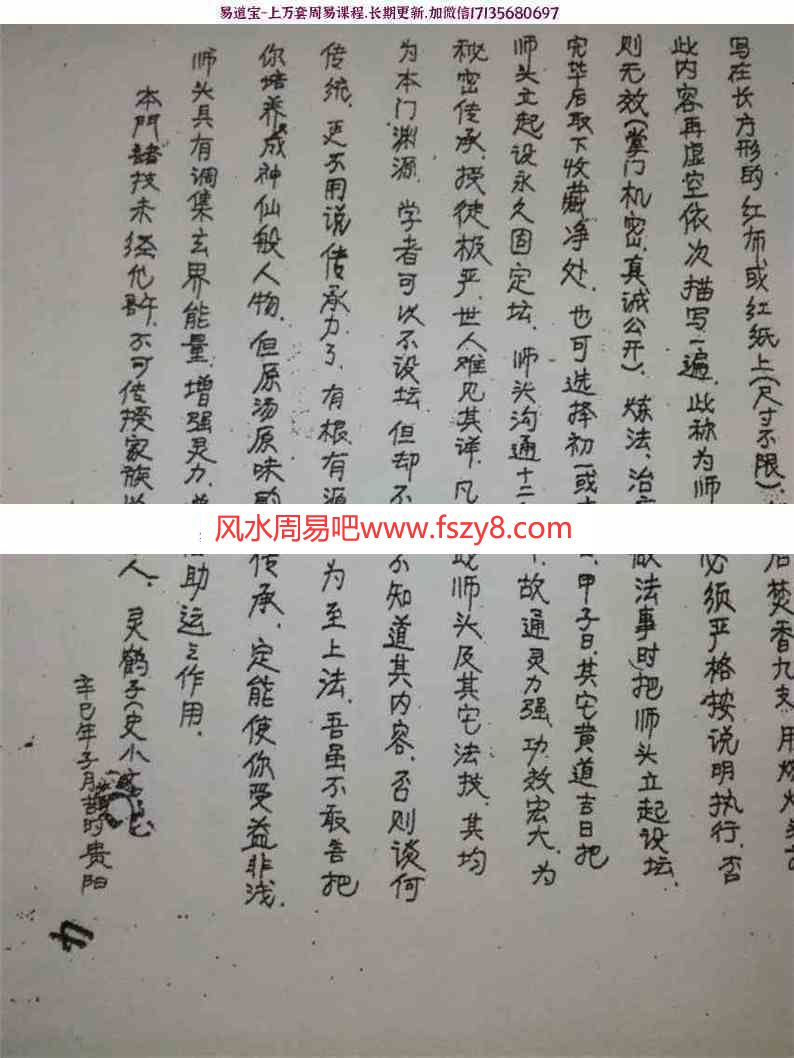 易道宝-上万套周易课程.长期更新.加微信17135680697
后焚香九支.用燃
写在长方形的红布或红纸上(尺寸不限).
此内容再虚空依次描写一遍.此称为师 必须严格按说明执行.否
则无效(掌门机密.真诚公开). 炼法、治 做法事时把师头立起设坛.
完毕后取下收藏净处. 也可选择初一或 甲子日.其它黄道吉日把
师头立起设永久固定坛. 师头沟通十二 故通灵力强.功效宏大.为
秘密传承.授徒极严.世人难见其详.凡 此师头及其它法技.其均
为本门渊源.学者可以不设坛.但却不 不知道其内容.否则谈何
传统.更不用说传承力了.有根有源 为至上法.吾虽不敢吾把
你培养成神仙般人物.但原汤原味的 传承.定能使你受益非浅.
师头具有调集玄界能量.增强灵力. 助运之作用.
本門諸技未经允許.不可传授家族 人. 灵鹤子(史小
辛巳年子月 时贵阳
风水周易吧www.fszy8.com